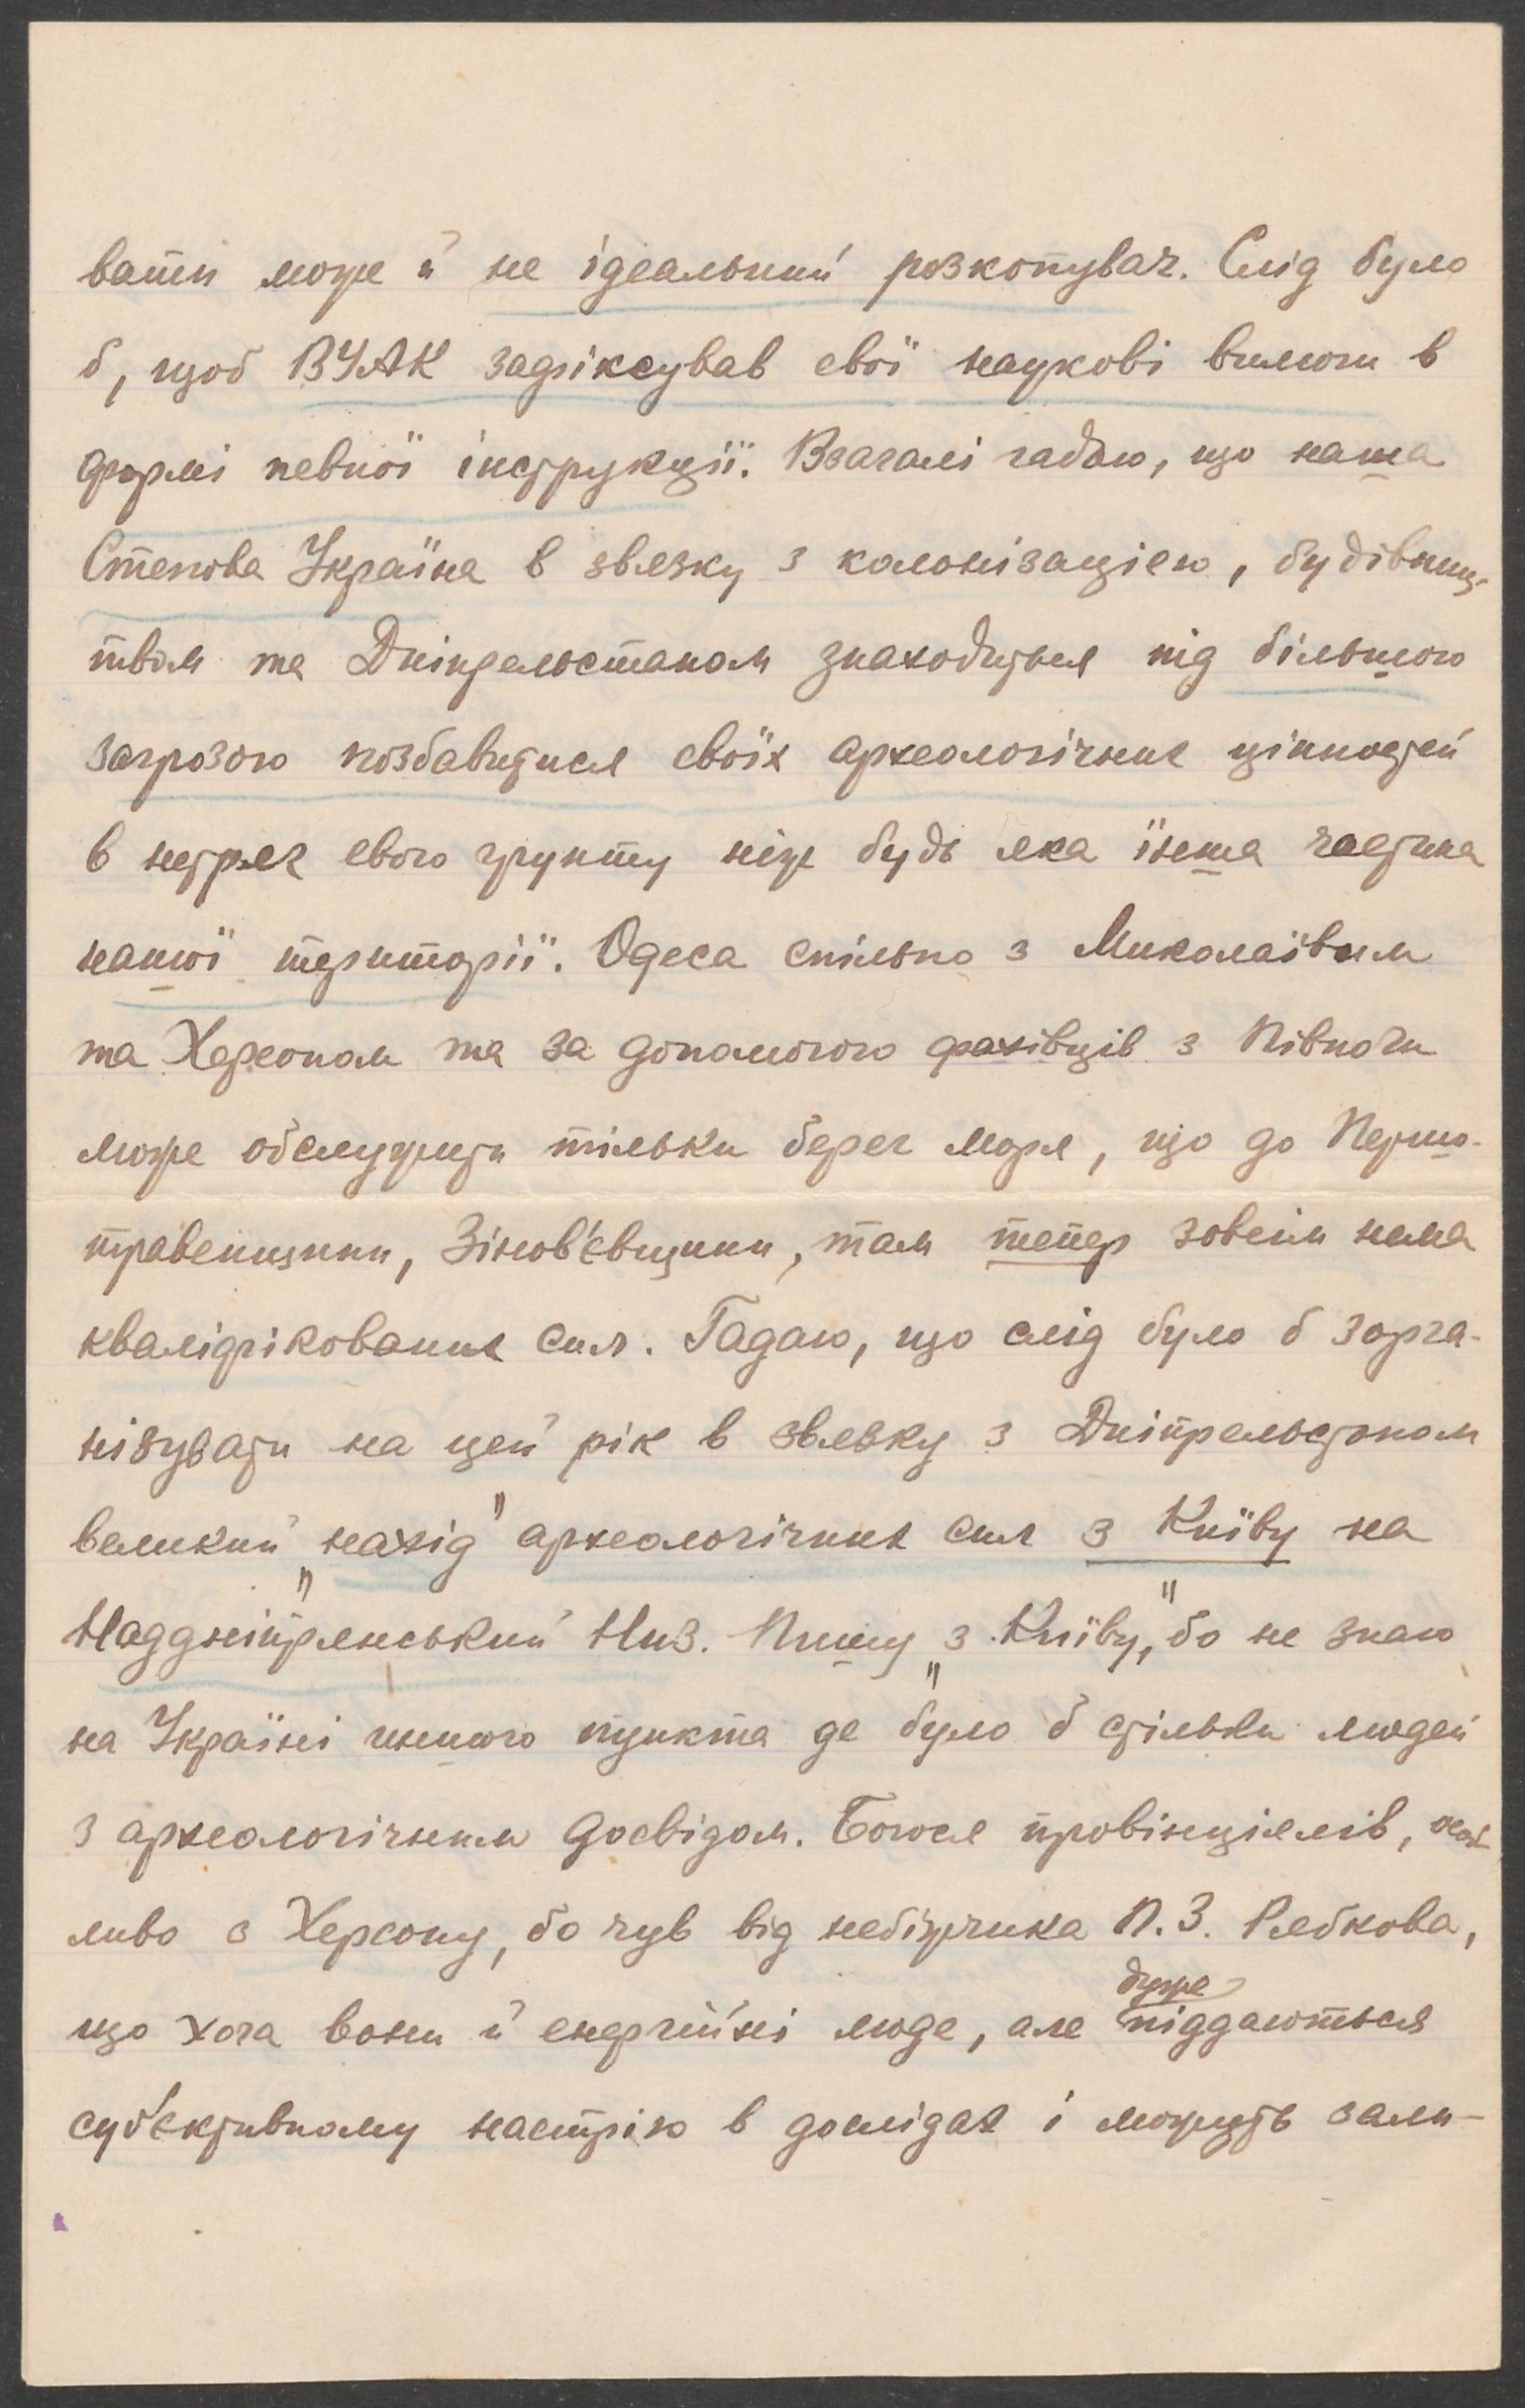 вати може й не ідеальний розкопувач. Слід було
б, щоб ВУАК зафіксував свої наукові вимоги в
формі певної інструкції. Взагалі гадаю, що наша
Степова Україна в звязку з колонізацією, будівниц-
твом та Дніпрельстаном знаходиться під більшою
загрозою позбавитися своїх археологічних цінностей
в недрах свого ґрунту ніж будь яка їнша частина
нашої території. Одеса спільно з Миколаївим
та Херсоном та за допомогою фахівців з Півночи
може обслужити тільки берег моря, що до Першо-
травенщини, Зінов'євщини, там тепер зовсім нема
кваліфікованих сил. Гадаю, що слід було б зорга-
нізувати на цей рік в звязку з Дніпрельстаном
великий „нахід" археологічних сил з Київу на
Наддніпрянський Низ. Пишу „з Київу", бо не знаю
на Україні иншого пункта де було б стільки людей
з археологічним досвідом. Боюся провінціялів, особ-
ливо з Херсону, бо чув від небіжчика П. З. Рябкова,
що хоча вони й енергійні люде, але дуже піддаються
суб'єктивному настрію в дослідах і можуть зали-